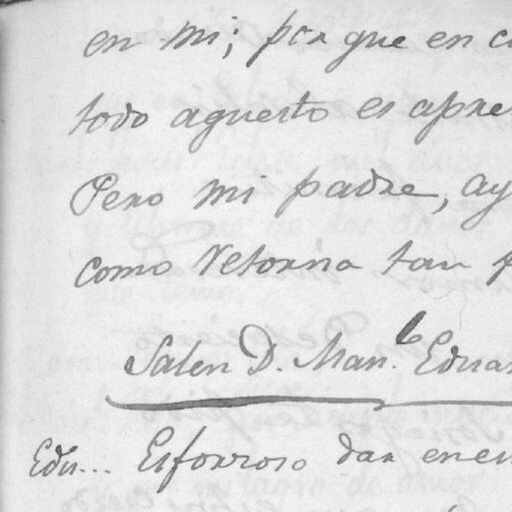 en mi; por que en c
todo aquesto es apre
Pero mi padre, ay
como retorna tan p
Salen D. Man.l Eduar
Edu... Esforzoso dar en en